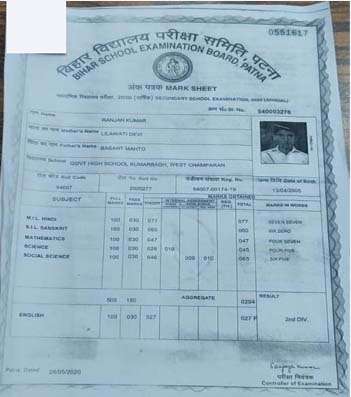 0551617
बिहार विद्यालय परीक्षा समिति, पटना
BIHAR SCHOOL EXAMINATION BOARD, PATNA
अंक पत्रक MARK SHEET
माध्यमिक विद्यालय परीक्षा, 2020 (वार्षिक) SECONDARY SCHOOL EXAMINATION, 2020 (ANNUAL)
क्रम सं० Sl. No. 540003276
नाम Name RANJAN KUMAR
माता का नाम Mother's Name LILAWATI DEVI
पिता का नाम Father's Name BASANT MAHTO
विद्यालय School GOVT HIGH SCHOOL KUMARBAGH, WEST CHAMPARAN
रोल कोड Roll Code रोल नं० Roll No पंजीयन संख्या Reg. No. जन्म तिथि Date of Birth
54007 2000277 13/04/2005
MARKS OBTAINED
SUBJECT FULL MARKS PASS MARKS THEORY INTERNAL ASSESSMENT REG. (TH.) TOTAL MARKS IN WORDS
M.I.L. HINDI 100 030 077 077 SEVEN SEVEN
S.I.L. SANSKRIT 100 030 060 060 SIX ZERO
MATHEMATICS 100 030 047 047 FOUR SEVEN
SCIENCE 100 030 026 019 045 FOUR FIVE
SOCIAL SCIENCE 100 030 046 009 010 065 SIX FIVE
500 150 AGGREGATE 0294 RESULT
ENGLISH 100 030 027 027 F 2nd DIV.
Patna, Dated 26/05/2020
परीक्षा नियंत्रक
Controller of Examination